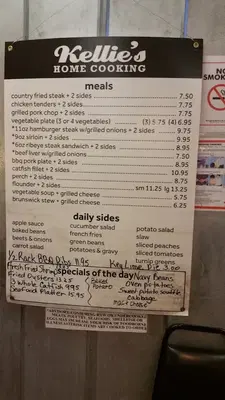 Kellie's
HOME COOKING
meals
country fried steak + 2 sides 7.50
chicken tenders + 2 sides 7.75
grilled pork chop + 2 sides 7.75
vegetable plate (3 or 4 vegetables) (3) 5.75 (4) 6.95
*11oz hamburger steak w/grilled onions + 2 sides 9.95
*9oz sirloin + 2 sides 9.95
*6oz ribeye steak sandwich + 2 sides 8.95
*beef liver w/grilled onions 7.50
bbq pork plate + 2 sides 8.95
catfish fillet + 2 sides 10.95
perch + 2 sides 8.75
flounder + 2 sides sm 11.25 lg 13.25
vegetable soup + grilled cheese 5.75
brunswick stew + grilled cheese 6.25
daily sides
apple sauce cucumber salad potato salad
baked beans french fries slaw
beets & onions green beans sliced peaches
carrot salad potatoes & gravy sliced tomatoes
turnip greens
1/2 Rack BBQ Ribs 11.95 Key Lime Pie 3.00
specials of the day
Fresh Fried Shrimp Navy Beans
Fried Oysters 13.25 Baked Oven potatoes
3 Whole Catfish 9.95 Potato Sweet potato souffle
Seafood Platter 15.95 Cabbage
NO
SMOKING